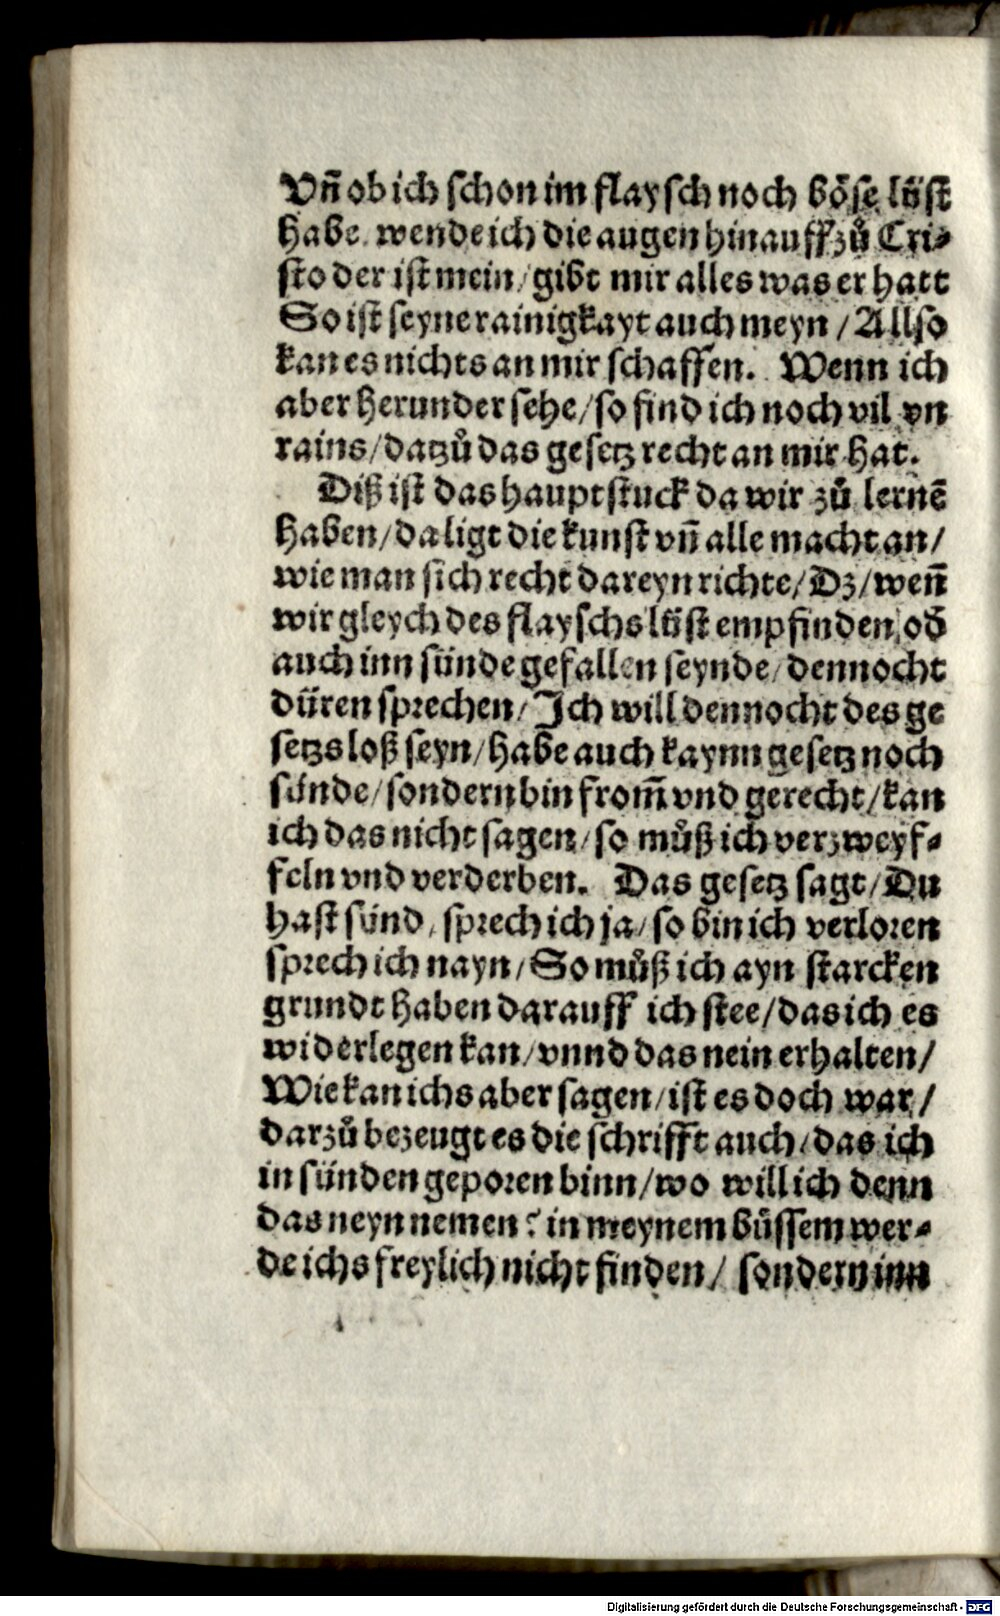 Vñ ob ich schon im flaysch noch böse lüst
habe. wende ich die augen hinauff zů Cri⸗
sto der ist mein / gibt mir alles was er hatt
So ist seyne rainigkayt auch meyn / Allso
kan es nichts an mir schaffen. Wenn ich
aber herunder sehe / so find ich noch vil vn
rains / datzů das gesetz recht an mir hat.
Diß ist das hauptstuck da wir zů lernē
haben / da ligt die kunst vñ alle macht an /
wie man sich recht dareyn richte / Dz / weñ
wir gleych des flayschs lüst empfinden, od̄
auch inn sünde gefallen seynde / dennocht
düren sprechen / Ich will dennocht des ge
setzs loß seyn / habe auch kaynn gesetz noch
sünde / sondern bin from̄ vnd gerecht / kan
ich das nicht sagen / so můß ich verzweyf⸗
feln vnd verderben. Das gesetz sagt / Du
hast sünd, sprech ich ja / so bin ich verloren
sprech ich nayn / So můß ich ayn starcken
grundt haben darauff ich stee / das ich es
widerlegen kan / vnnd das nein erhalten /
Wie kan ichs aber sagen / ist es doch war /
darzů bezeugt es die schrifft auch / das ich
in sünden geporen binn / wo will ich denn
das neyn nemen? in meynem bůssem wer⸗
de ichs freylich nicht finden / sondern inn
Digitalisierung gefördert durch die Deutsche Forschungsgemeinschaft - DFG